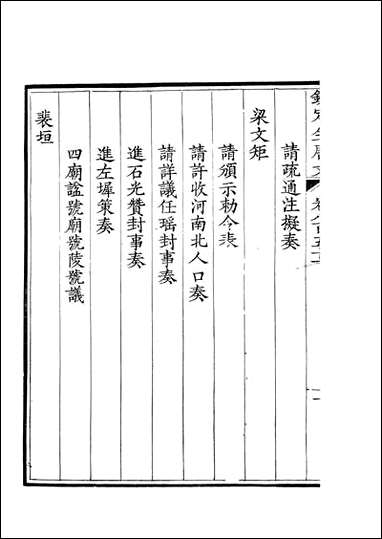 欽定全唐文
請疏通注擬奏
梁文矩
請頒示勅令表
請許收河南北人口奏
請詳議任瑶封事奏
進石光贊封事奏
進左墀策奏
四廟諡號廟號陵號議
裴垣